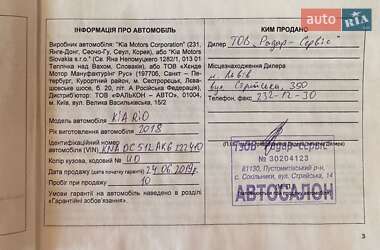 AUTO.RIA
ІНФОРМАЦІЯ ПРО АВТОМОБІЛЬ
Виробник автомобіля: "Kia Motors Corporation" (231,
Янге-Донг, Сеочо-Гу, Сеул, Корея), або "Kia Motors
Slovakia s.r.o." (Св. Яна Непомуцкего 1282/1, 013 01
Тепличка над Вахом, Словакія) або ТОВ «Хенде
Мотор Мануфактурінг Рус» (197706, Санкт – Петербург,
а. Російська Федерація),
Дистриб'ютор: ТОВ «ФАЛЬКОН – АВТО», 01004,
м. Київ, вул. Велика Васильківська, 15/2
Модель автомобіля KIA RIO
Рік виготовлення автомобіля 2018
Ідентифікаційний номер
автомобіля (VIN) KNADC512AK6
Колір кузова, кодовий № UD
Дата продажу 24.06.2019р
Пробіг при продажу 10
Умови гарантії на автомобіль наведено в розділі
«Гарантійні зобов'язання».
КИМ ПРОДАНО
Дилер ТОВ "Радар-Сервіс"
Місцезнаходження Дилера
м. Львів
вул. Стрийська, 350
Телефон, факс 232-12-30
ТзОВ "Радар-сервіс"
№ 30204123
81130, Пустомитівський р-н,
с. Сокільники, вул. Стрийська, 14
АВТОСАЛОН
3